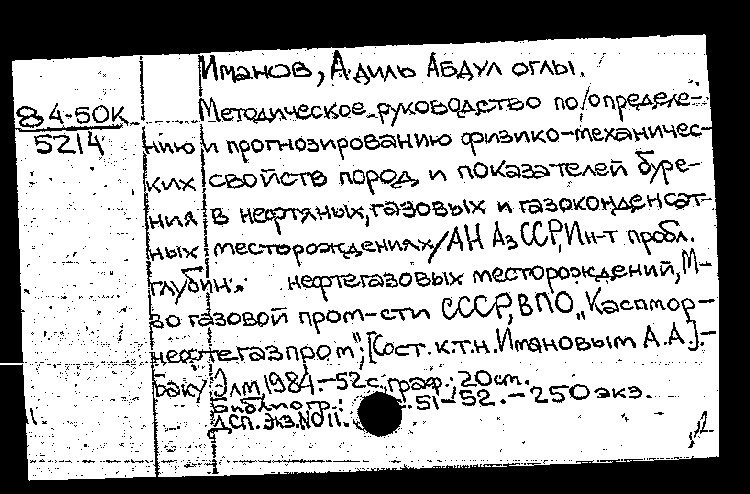 Иманов, Адиль Абдул оглы.
84-50к
5214
Методическое руководство по определе-
нию и прогнозированию физико-механичес-
ких свойств пород, и показателей буре-
ния в нефтяных, газовых и газоконденсат-
ных месторождениях/АН АзССР, Ин-т пробл.
глубин. нефтегазовых месторождений, М-
во газовой пром-сти СССР, ВПО „Каспмор-
нефтегазпром"; [Сост. к.т.н. Имановым А.А.].-
Баку: Элм, 1984.-52с.: граф.; 20см.
Библиогр.: с. 51-52.-250экз.
ДСП. Экз.№11.